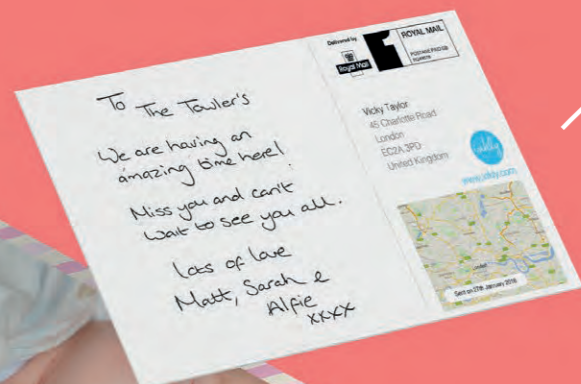 To The Towler's
We are having an
amazing time here!
Miss you and can't
wait to see you all.
Lots of love
Matt, Sarah &
Alfie
xxxx
Delivered by
Royal Mail
1
ROYAL MAIL
POSTAGE PAID GB
Vicky Taylor
45 Charlotte Road
London
EC2A 3PD
United Kingdom
Sent on 27th January 2016